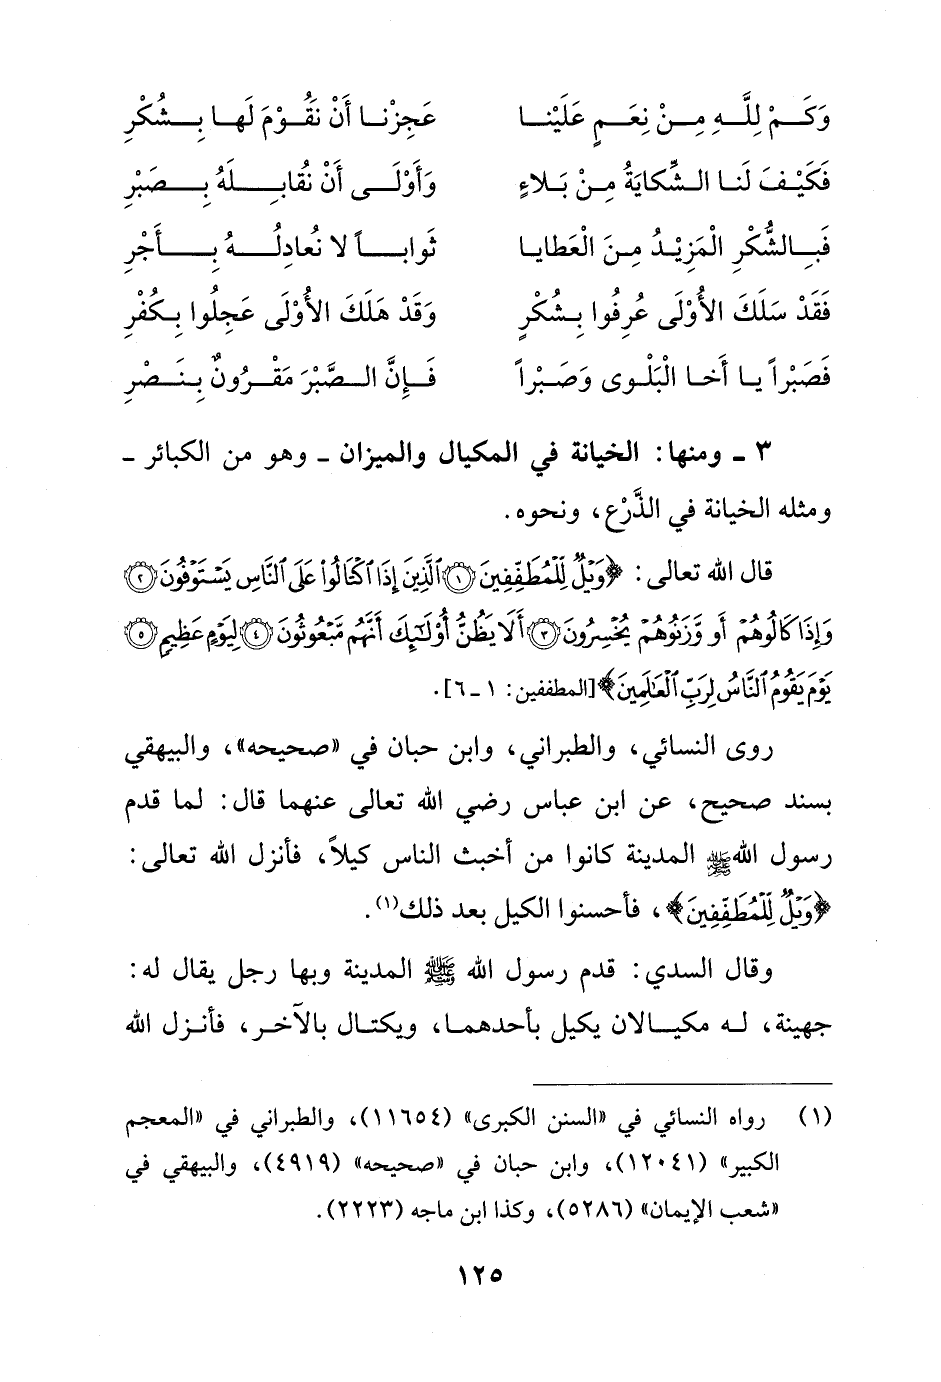 وَكَمْ لِلَّهِ مِنْ نِعَمٍ عَلَيْنا عَجِزْنا أَنْ نَقُوْمَ لَها بِشُكْرِ
فَكَيْفَ لَنا الشِّكايَةُ مِنْ بَلاءٍ وَأَوْلَى أَنْ نُقابِلَهُ بِصَبْرِ
فَبِالشُّكْرِ الْمَزِيْدُ مِنَ الْعَطايا ثَواباً لا نُعادِلُهُ بِأَجْرِ
فَقَدْ سَلَكَ الأُوْلَى عُرِفُوا بِشُكْرٍ وَقَدْ هَلَكَ الأُوْلَى عَجِلُوا بِكُفْرِ
فَصَبْراً يا أَخا الْبَلْوى وَصَبْراً فَإِنَّ الصَّبْرَ مَقْرُونٌ بِنَصْرِ
٣ ـ ومنها: الخيانة في المكيال والميزان ـ وهو من الكبائر ـ
ومثله الخيانة في الذَّرْع، ونحوه.
قال الله تعالى: ﴿وَيْلٌ لِّلْمُطَفِّفِينَ ۝١ ٱلَّذِينَ إِذَا ٱكْتَالُوا۟ عَلَى ٱلنَّاسِ يَسْتَوْفُونَ ۝٢
وَإِذَا كَالُوهُمْ أَو وَّزَنُوهُمْ يُخْسِرُونَ ۝٣ أَلَا يَظُنُّ أُو۟لَٰٓئِكَ أَنَّهُم مَّبْعُوثُونَ ۝٤ لِيَوْمٍ عَظِيمٍ ۝٥
يَوْمَ يَقُومُ ٱلنَّاسُ لِرَبِّ ٱلْعَٰلَمِينَ﴾ [المطففين: ١ ـ ٦].
روى النسائي، والطبراني، وابن حبان في «صحيحه»، والبيهقي
بسند صحيح، عن ابن عباس رضي الله تعالى عنهما قال: لما قدم
رسول الله ﷺ المدينة كانوا من أخبث الناس كيلاً، فأنزل الله تعالى:
﴿وَيْلٌ لِّلْمُطَفِّفِينَ﴾، فأحسنوا الكيل بعد ذلك(١).
وقال السدي: قدم رسول الله ﷺ المدينة وبها رجل يقال له:
جهينة، له مكيالان يكيل بأحدهما، ويكتال بالآخر، فأنزل الله
(١) رواه النسائي في «السنن الكبرى» (١١٦٥٤)، والطبراني في «المعجم
الكبير» (١٢٠٤١)، وابن حبان في «صحيحه» (٤٩١٩)، والبيهقي في
«شعب الإيمان» (٥٢٨٦)، وكذا ابن ماجه (٢٢٢٣).
١٢٥